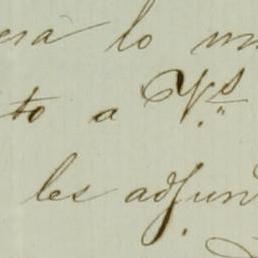 erá lo m
to a Vs
les adjun